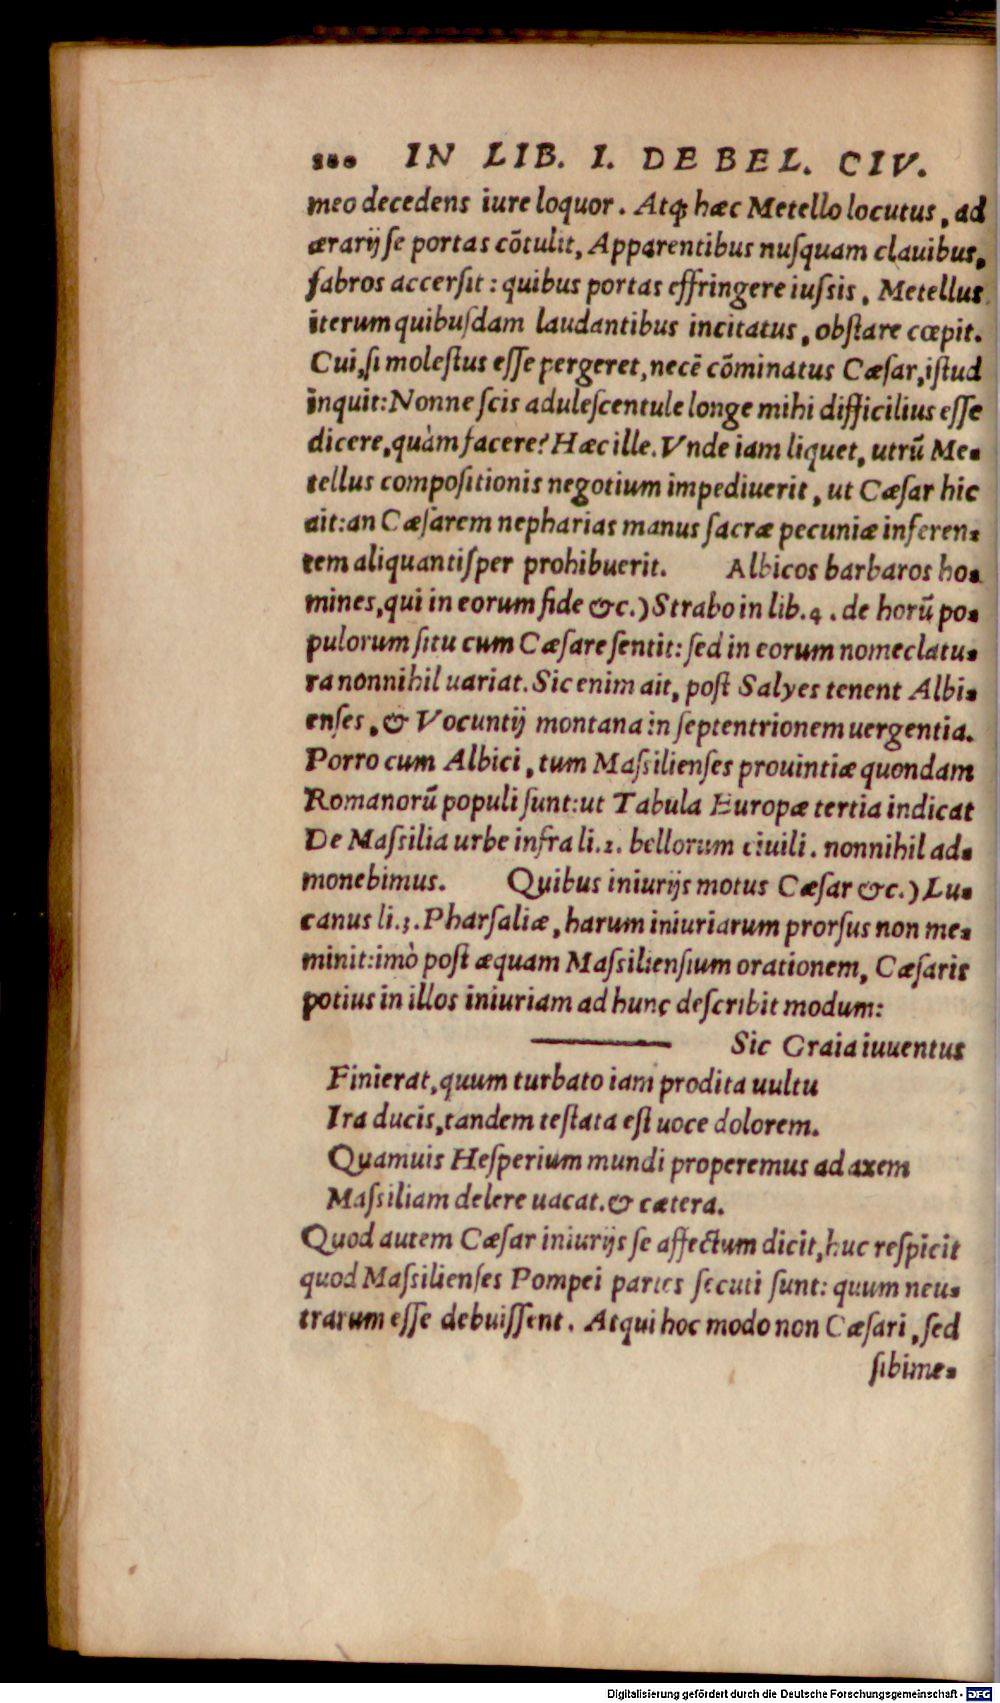 IN LIB. I. DE BEL. CIV.
meo decedens iure loquor. Atq; hæc Metello locutus, ad
ærarij se portas cõtulit, Apparentibus nusquam clauibus,
fabros accersit: quibus portas effringere iussis, Metellus
iterum quibusdam laudantibus incitatus, obstare cœpit.
Cui, si molestus esse pergeret, necē cõminatus Cæsar, istud
inquit: Nonne scis adulescentule longe mihi difficilius esse
dicere, quàm facere? Hæc ille. Vnde iam liquet, utrū Me-
tellus compositionis negotium impediuerit, ut Cæsar hic
ait: an Cæsarem nepharias manus sacræ pecuniæ inferen-
tem aliquantisper prohibuerit. Albicos barbaros ho-
mines, qui in eorum fide &c.) Strabo in lib. 4. de horū po-
pulorum situ cum Cæsare sentit: sed in eorum nomeclatu-
ra nonnihil uariat. Sic enim ait, post Salyes tenent Albi-
enses, & Vocuntij montana in septentrionem uergentia.
Porro cum Albici, tum Massilienses prouintiæ quondam
Romanorū populi sunt: ut Tabula Europæ tertia indicat
De Massilia urbe infra li. 2. bellorum ciuili. nonnihil ad-
monebimus. Quibus iniurijs motus Cæsar &c.) Lu-
canus li. 3. Pharsaliæ, harum iniuriarum prorsus non me-
minit: imò post æquam Massiliensium orationem, Cæsaris
potius in illos iniuriam ad hunc describit modum:
Sic Graia iuuentus
Finierat, quum turbato iam prodita uultu
Ira ducis, tandem testata est uoce dolorem.
Quamuis Hesperium mundi properemus ad axem
Massiliam delere uacat. & cætera.
Quod autem Cæsar iniurijs se affectum dicit, huc respicit
quod Massilienses Pompei partes secuti sunt: quum neu-
trarum esse debuissent. Atqui hoc modo non Cæsari, sed
sibime-
Digitalisierung gefördert durch die Deutsche Forschungsgemeinschaft - DFG